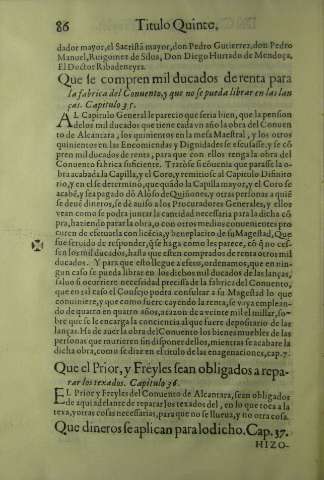 86 Titulo Quinto,
dador mayor, el Sacristã mayor, don Pedro Gutierrez, don Pedro
Manuel, Ruigomez de Silua, Don Diego Hurtado de Mendoça,
El Doctor Ribadeneyra.
Que se compren mil ducados de renta para
la fabrica del Conuento, y que no se pueda librar en las lan
ças. Capitulo 35.
AL Capitulo General le parecio que seria bien, que la pension
de los mil ducados que tiene cada vn año la obra del Conuen
to de Alcantara, los quinientos en la mesa Maestral, y los otros
quinientos en las Encomiendas y Dignidades se escusasse, y se cō
pren mil ducados de renta, para que con ellos tenga la obra del
Conuento fabrica suficiente. Tratòse si cōuenia que parasse la o-
bra acabada la Capilla, y el Coro, y remitiose al Capitulo Difinito
rio, y en el se determinò, que quādo la Capilla mayor, y el Coro se
acabē, y sea pagado dō Alōso de Quiñones, y otras personas a quiē
se deuē dineros, se dè auiso a los Procuradores Generales, y ellos
vean como se podra juntar la cantidad necessaria para la dicha cō
pra, haziendo parar la obra, o con otros medios conuenientes pro
curen de efetuarla con licēcia, y beneplacito de su Magestad, Que
fue seruido de responder, q̄ se haga como les parece, cō q̄ no ces-
sen los mil ducados, hasta que esten comprados de renta otros mil
ducados. Y para que esto llegue a efeto, ordenamos, que en nin-
gun caso se pueda librar en los dichos mil ducados de las lanças,
saluo si ocurriere necessidad precissa de la fabrica del Conuento,
que en tal caso el Consejo podra consultar a su Magestad lo que
conuiniere, y que como fuere cayendo la renta, se vaya emplean-
do de quatro en quatro años, a razon de a veinte mil el millar, so-
bre que se le encarga la conciencia al que fuere depositario de las
lanças. Ha de auer la obra del Conuento los bienes muebles de las
personas que murieren sin disponer dellos, mientras se acabare la
dicha obra, como se dize en el titulo de las enagenaciones, cap. 7.
Que el Prior, y Freyles sean obligados a repa-
rar los texados. Capitulo 36.
EL Prior y Freyles del Conuento de Alcantara, sean obligados
de aqui adelante de reparar los texados del, en lo que toca a la
texa, y otras cosas necessarias, para que no se llueua, y no otra cosa.
Que dineros se aplican para lo dicho. Cap. 37.
HIZO-